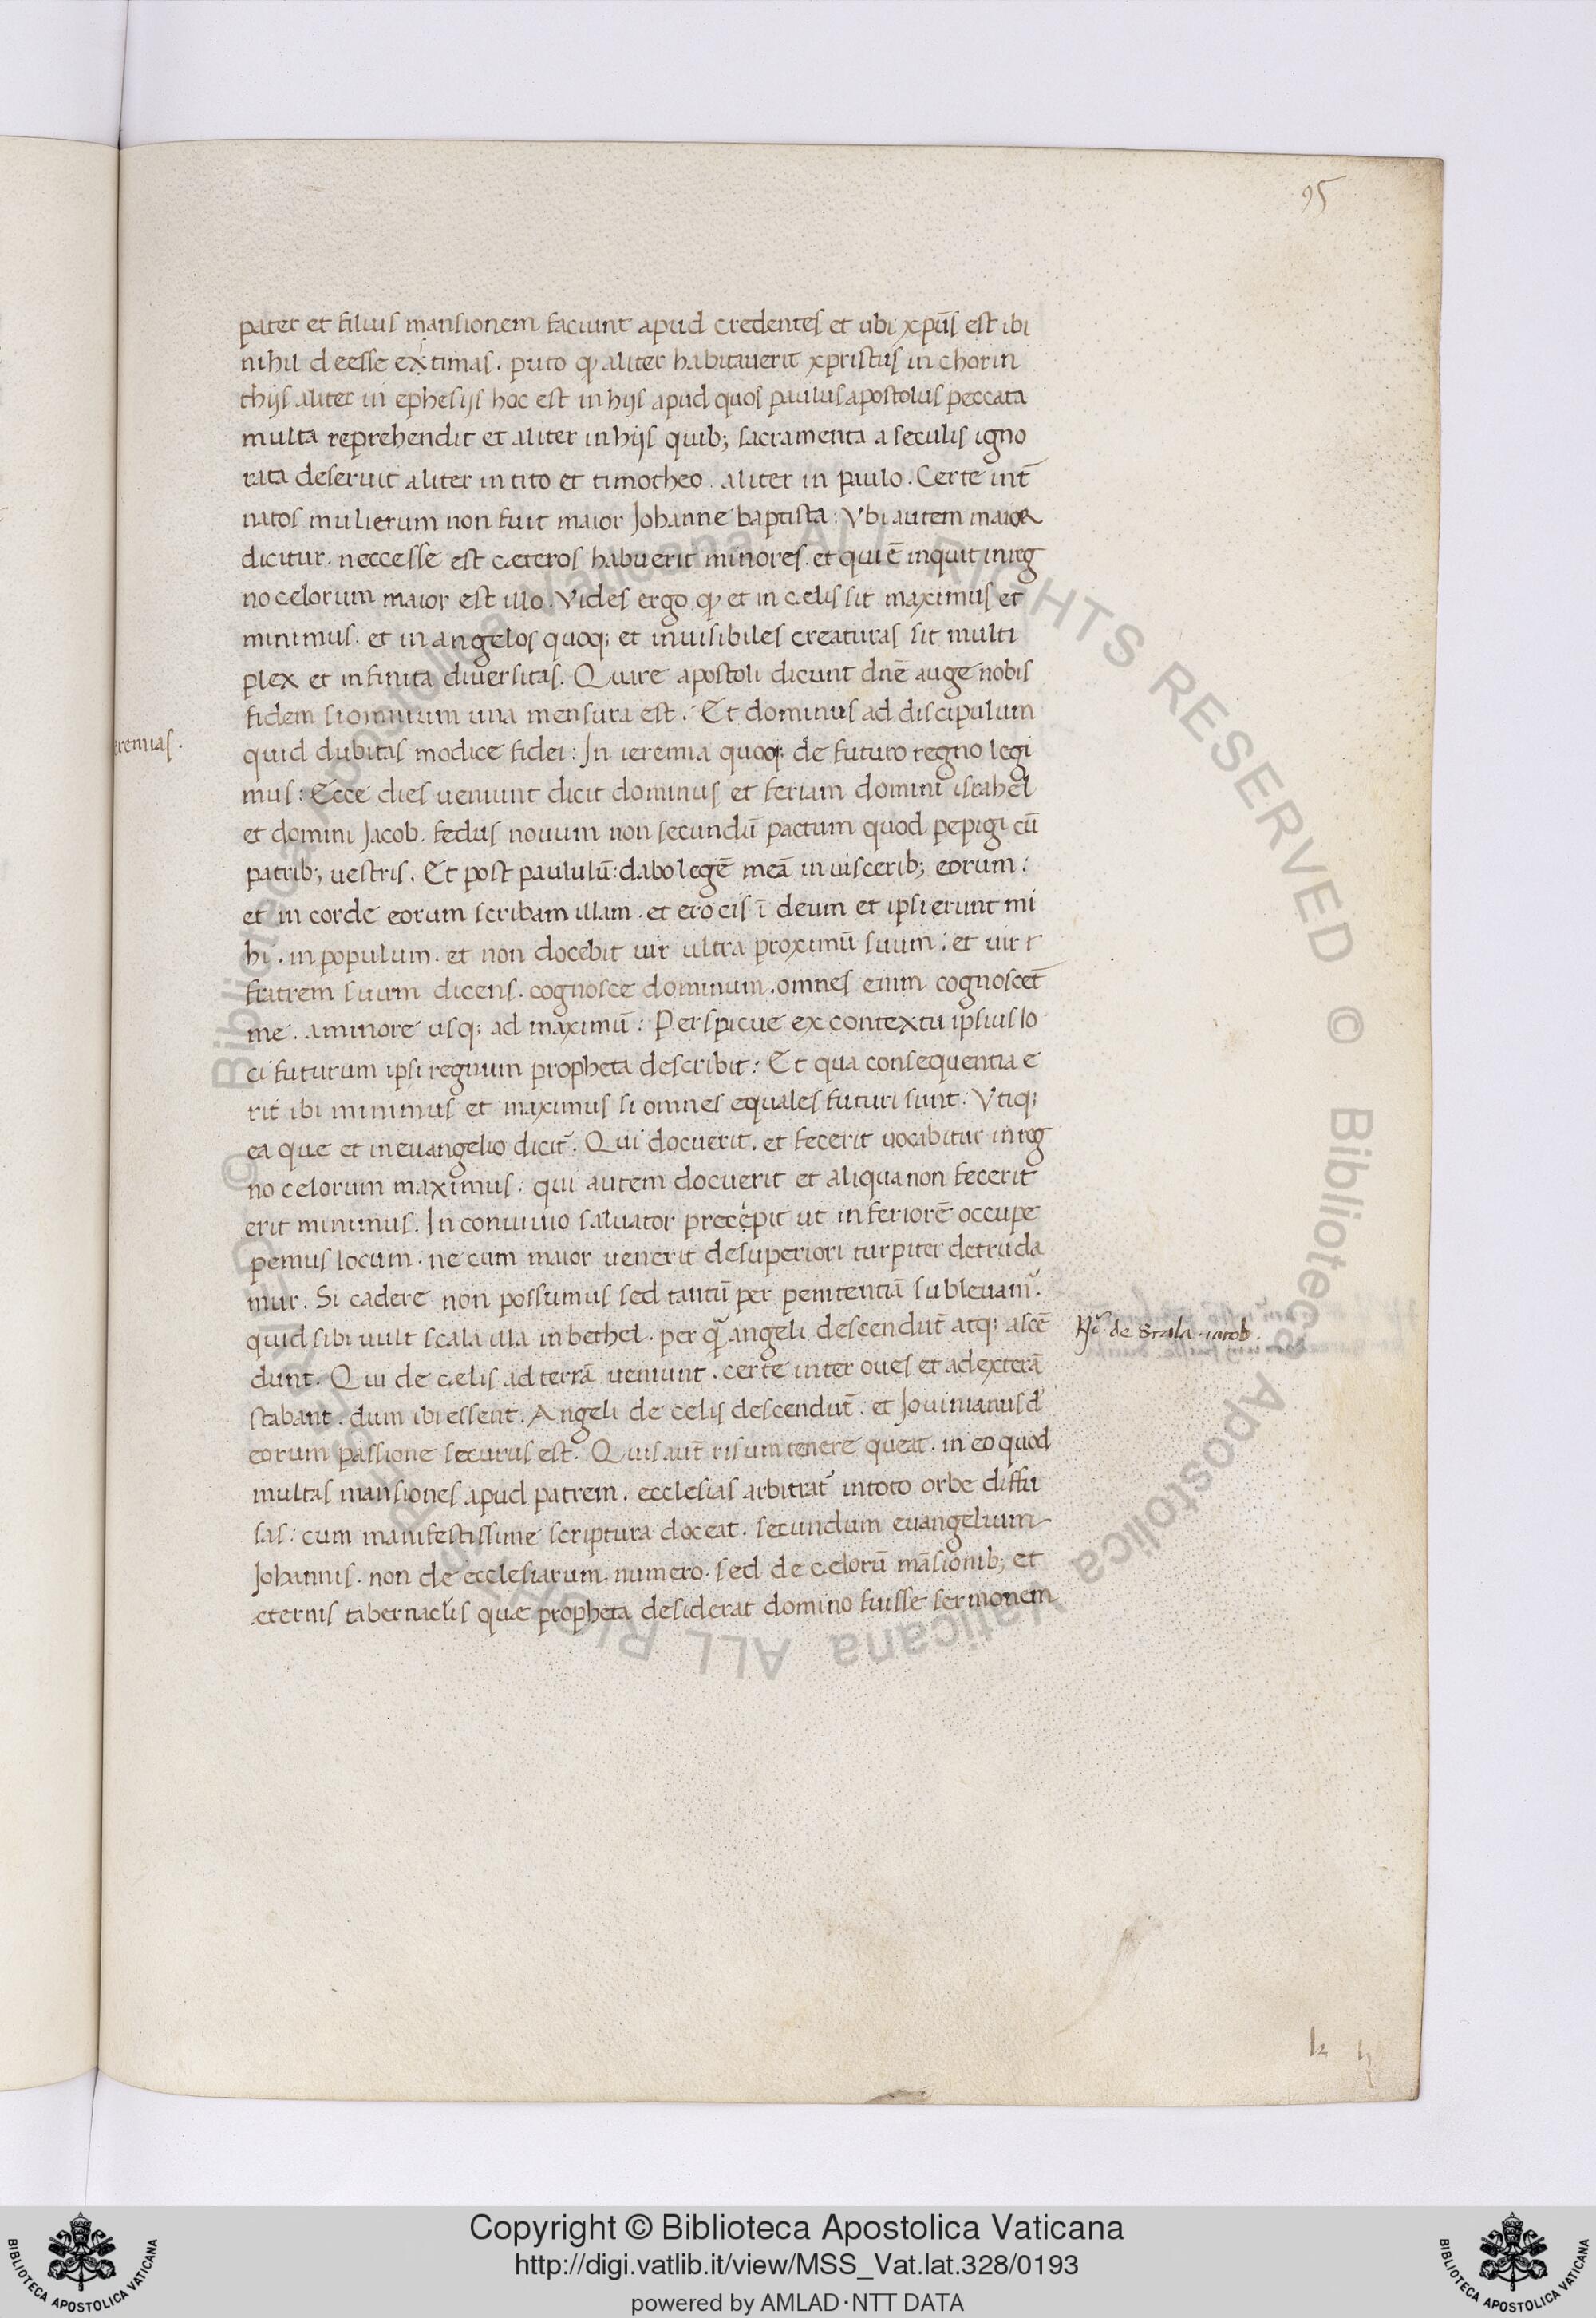 95
pater et filius mansionem faciunt apud credentes et ubi xpūs est ibi
nihil deesse extimas. puto ꝙ aliter habitauerit xpristus in chorin
thijs aliter in ephesijs hoc est in hijs apud quos paulus apostolus peccata
multa reprehendit et aliter in hijs quib; sacramenta a seculis igno
rata deseruit aliter in tito et timotheo. aliter in paulo. Certe int̄
natos mulierum non fuit maior Johanne baptista: Vbi autem maior
dicitur. neccesse est cæteros habuerit minores. et qui ē inquit in reg
no celorum maior est illo. Vides ergo ꝙ et in cælis sit maximus et
minimus. et in angelos quoq; et inuisibiles creaturas sit multi
plex et infinita diuersitas. Quare apostoli dicunt dnē auge nobis
fidem si omnium una mensura est. Et dominus ad discipulum
eremias.
quid dubitas modice fidei: In ieremia quoq; de futuro regno legi
mus: Ecce dies ueniunt dicit dominus et feriam domini israhel
et domini Jacob. fedus nouum non secundū pactum quod pepigi cū
patrib; uestris. Et post paululū: dabo legē meā in uiscerib; eorum:
et in corde eorum scribam illam. et ero eis ī deum et ipsi erunt mi
hi. in populum. et non docebit uir ultra proximū suum: et uir
fratrem suum dicens. cognosce dominum. omnes enim cognoscēt
me. a minore usq; ad maximū: Perspicue ex contextu ipsius lo
ci futurum ipsi regnum propheta describit: Et qua consequentia e
rit ibi minimus et maximus si omnes equales futuri sunt: Vtiq;
ea que et in euangelio dicit̄. Qui docuerit. et fecerit uocabitur in reg
no celorum maximus: qui autem docuerit et aliqua non fecerit
erit minimus. In conuiuio saluator precepit ut inferiorē occupe
pemus locum. ne cum maior uenerit de superiori turpiter detruda
mur. Si cadere non possumus sed tantū per penitentiā subleuam̄.
quid sibi uult scala illa in bethel. per quā angeli descendūt atq; ascē
de scala iacob.
dunt. Qui de cælis ad terrā ueniunt. certe inter oues et ad exterā
stabant. dum ibi essent. Angeli de celis descendūt: et Jouinianus d'
eorum passione securus est. Quis aut̄ risum tenere queat. in eo quod
multas mansiones apud patrem. ecclesias arbitrat̄ in toto orbe diffu
sas: cum manifestissime scriptura doceat. secundum euangelium
Johannis. non de ecclesiarum numero. sed de cælorū māsionib; et
æternis tabernaclis quæ propheta desiderat domino fuisse sermonem
Copyright © Biblioteca Apostolica Vaticana
http://digi.vatlib.it/view/MSS_Vat.lat.328/0193
powered by AMLAD·NTT DATA
BIBLIOTECA APOSTOLICA VATICANA
BIBLIOTECA APOSTOLICA VATICANA
© Biblioteca Apostolica Vaticana ALL RIGHTS RESERVED © Biblioteca Apostolica Vaticana ALL RIGHTS RESERVED